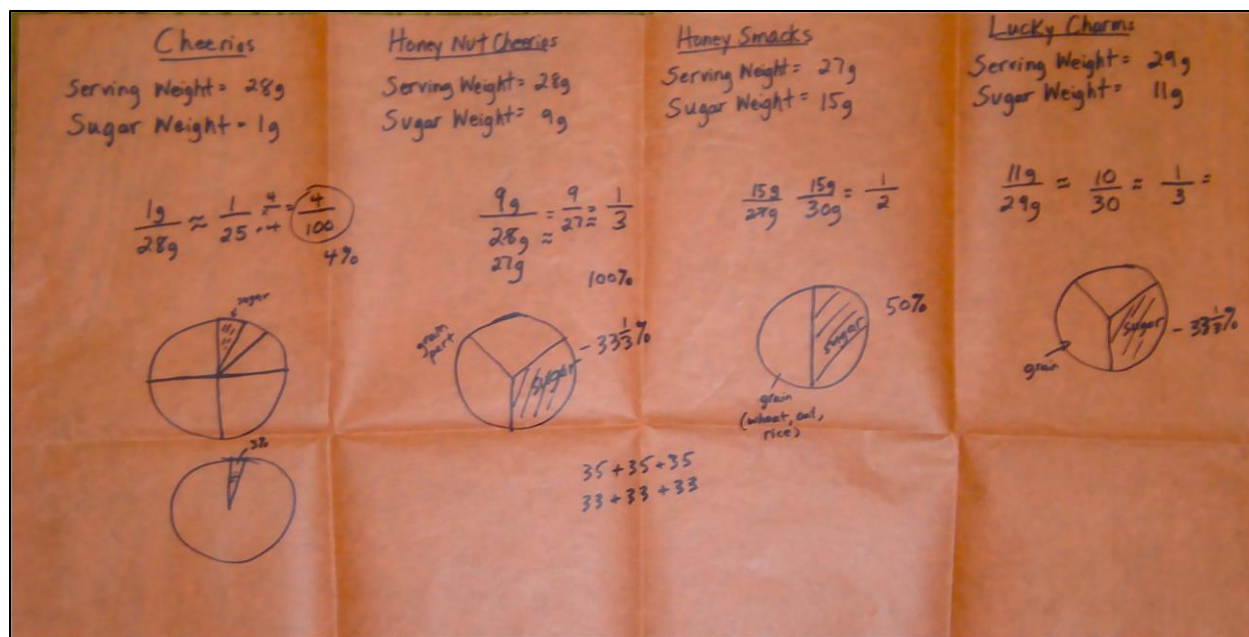 Cheerios
Serving Weight = 28g
Sugar Weight = 1g
1g/28g ≈ 1/25 · 4/4 = 4/100
4%
sugar
3%
Honey Nut Cheerios
Serving Weight = 28g
Sugar Weight = 9g
9g/28g = ≈ 9/27 = ≈ 1/3
27g
100%
grain part
sugar - 33 1/3%
35 + 35 + 35
33 + 33 + 33
Honey Smacks
Serving Weight = 27g
Sugar Weight = 15g
15g/27g 15g/30g = 1/2
50%
sugar
grain
(wheat, oat,
rice)
Lucky Charms
Serving Weight = 29g
Sugar Weight = 11g
11g/29g ≈ 10/30 ≈ 1/3 =
sugar - 33 1/3%
grain